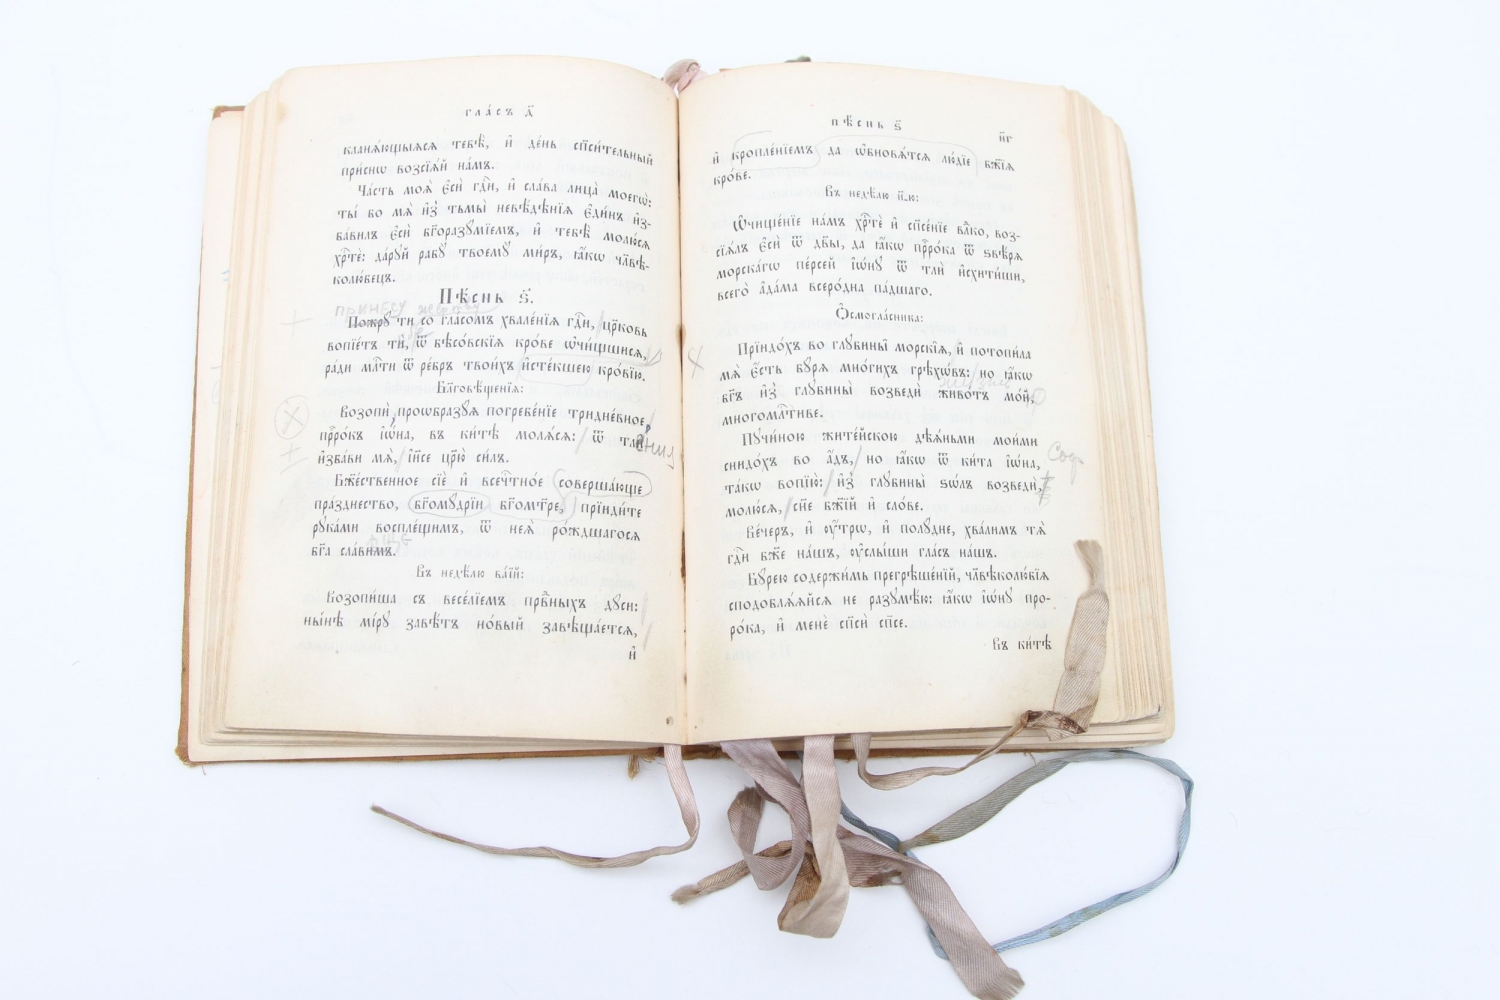 гла́съ д҃
кланѧ́ющыѧсѧ тебѣ̀, и҆ де́нь сп҃си́тельный
при́снѡ возсїѧ́й на́мъ.
Ча́сть моѧ̀ є҆сѝ гдⷭ҇и, и҆ сла́ва лица̀ моегѡ̀:
ты́ бо мѧ̀ и҆з̾ тьмы̀ невѣ́дѣнїѧ є҆ди́нъ и҆з-
ба́вилъ є҆сѝ бг҃оразꙋ́мїемъ, и҆ тебѣ̀ молю́сѧ
хрⷭ҇тѐ: да́рꙋй рабꙋ̀ твоемꙋ̀ ми́ръ, ꙗ҆́кѡ чл҃вѣ-
колю́бецъ.
Пѣ́снь ѕ҃.
принесу жертву
Пожрꙋ́ ти со гла́сомъ хвале́нїѧ гдⷭ҇и, цр҃ковь
вопїе́тъ тѝ, ѿ бѣсо́вскїѧ кро́ве ѡ҆чи́щшисѧ,
ра́ди млⷭ҇ти ѿ ре́бръ твои́хъ и҆сте́кшею кро́вїю.
Бл҃говѣ́щенїѧ:
Возопѝ, проѡбразꙋ́ѧ погребе́нїе тридне́вное
прⷪ҇ро́къ і҆ѡ́на, въ ки́тѣ молѧ́сѧ: ѿ тлѝ
и҆зба́ви мѧ̀, і҆и҃се цр҃ю̀ си́лъ.
Бж҃е́ственное сїѐ и҆ всечⷭ҇тно́е соверша́юще
пра́зднество, бг҃омꙋ́дрїи бг҃ома́тре, прїиди́те
рꙋка́ми воспле́щимъ, ѿ неѧ̀ ро́ждшагосѧ
бг҃а сла́вимъ.
Въ недѣ́лю ва́їй:
Возопи́ша съ весе́лїемъ првⷣныхъ дꙋ́си:
ны́нѣ мі́рꙋ завѣ́тъ но́вый завѣща́етсѧ,
и҆
пѣ́снь ѕ҃
и҆ кропле́нїемъ да ѡ҆бновѧ́тсѧ лю́дїе бж҃їѧ
кро́ве.
Въ недѣ́лю н҃-ю:
Ѡ҆чище́нїе на́мъ хрⷭ҇тѐ и҆ сп҃се́нїе влⷣко, воз-
сїѧ́лъ є҆сѝ ѿ дв҃ы, да ꙗ҆́кѡ прⷪ҇ро́ка ѿ ѕвѣ́рѧ
морска́гѡ пе́рсей і҆ѡ́нꙋ ѿ тлѝ и҆схи́тиши,
всего̀ а҆да́ма всеро́дна па́дшаго.
Ѻ҆смогла́сника:
Прїидо́хъ во глꙋбины̑ морскі̑ѧ, и҆ потопи́ла
мѧ̀ є҆́сть бꙋ́рѧ мно́гихъ грѣхѡ́въ: но ꙗ҆́кѡ
бг҃ъ и҆з̾ глꙋбины̀ возведѝ живо́тъ мо́й,
многомⷭ҇тиве.
Пꙋчи́ною жите́йскою дѣѧ́ньми мои́ми
снидо́хъ во а҆́дъ, но ꙗ҆́кѡ ѿ ки́та і҆ѡ́на,
та́кѡ вопїю̀: и҆з̾ глꙋбины̀ ѕѡ́лъ возведѝ,
молю́сѧ, сн҃е бж҃їй и҆ сло́ве.
Ве́черъ, и҆ ᲂу҆́трѡ, и҆ полꙋ́дне, хва́лимъ тѧ̀
гдⷭ҇и бж҃е на́шъ, ᲂу҆слы́ши гла́съ на́шъ.
Бꙋ́рею содержи́мь прегрѣше́нїй, чл҃вѣколю́бїѧ
сподоблѧ́ѧйсѧ не разꙋмѣ́ю: ꙗ҆́кѡ і҆ѡ́нꙋ про-
ро́ка, и҆ менѐ сп҃сѝ сп҃се.
Въ ки́тѣ